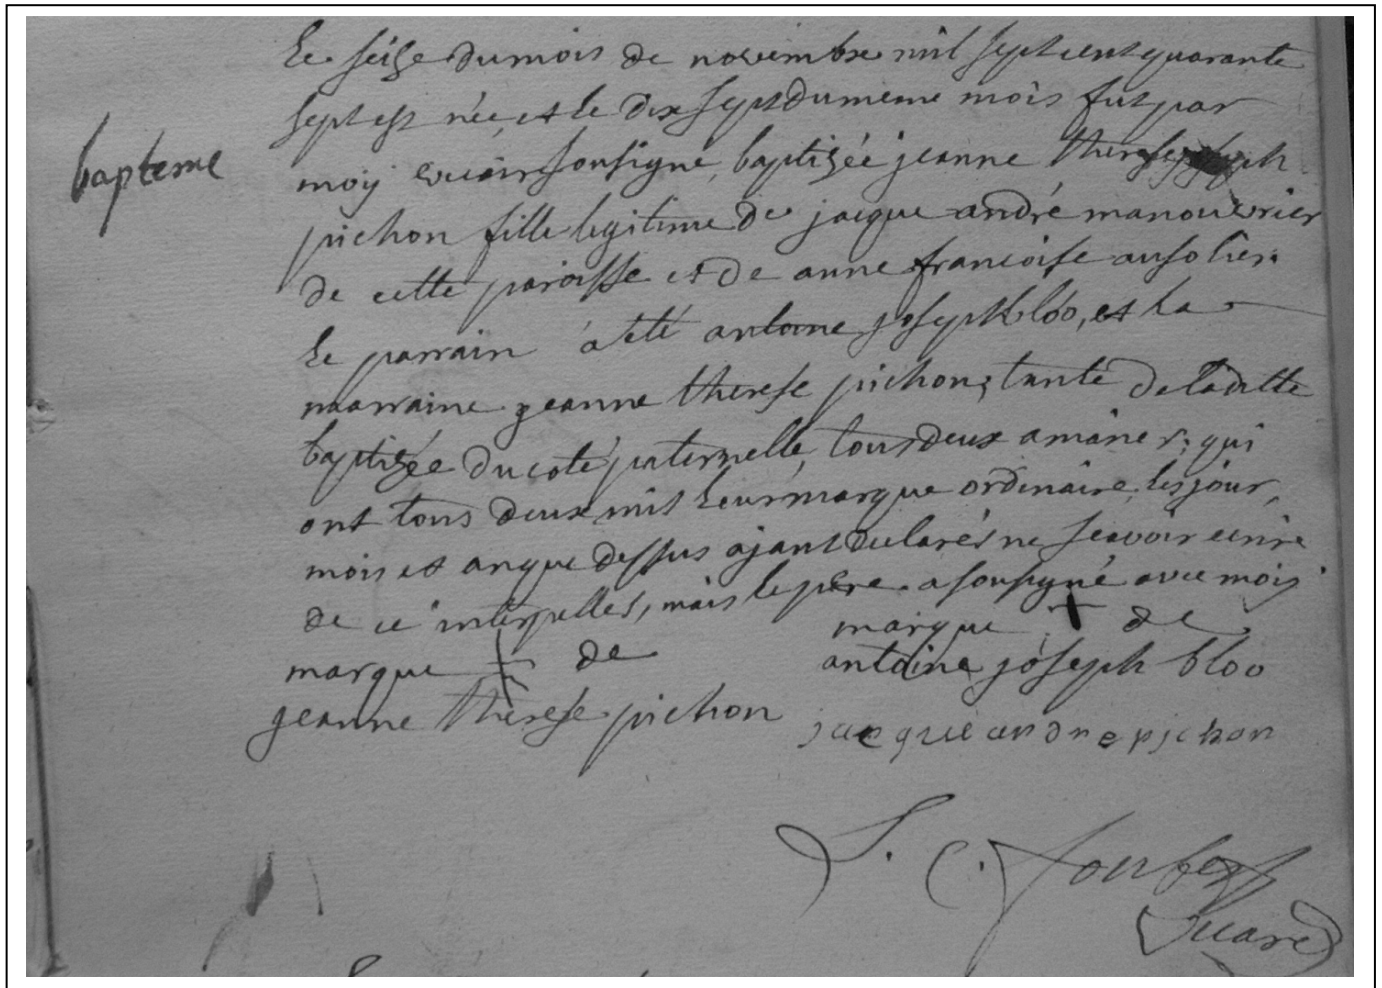 bapteme
Le seize du mois de novembre mil sept cent quarante
sept est née, et le dix sept du meme mois fut par
moy vicair sousigné, baptizée jeanne therese joseph
pichon fille legitime de jacque andré manouvrier
de cette paroisse et de anne francoise ansolier.
Le parrain a eté antoine joseph bloo, et la
marraine jeanne therese pichon; tante de ladite
baptizée du coté paternelle, tous deux a mâner; qui
ont tous deux mis leur marque ordinaire, les jour,
mois et an que dessus ajant declarés ne scavoir ecrire
de ce interpellés, mais le pere a sousigné avec mois
marque de
marque de
antoine joseph bloo
jeanne therese pichon
jacque andre pichon